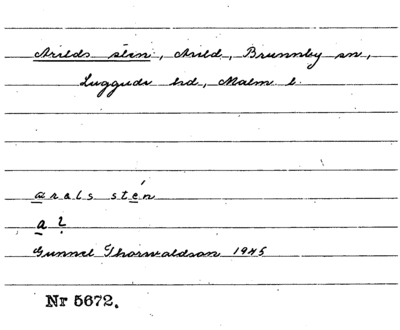 Arilds sten, Arild, Brunnby sn,
Luggude hd, Malm l.
arals stén
a ?
Gunnel Thorwaldson 1945
Nr 5672.